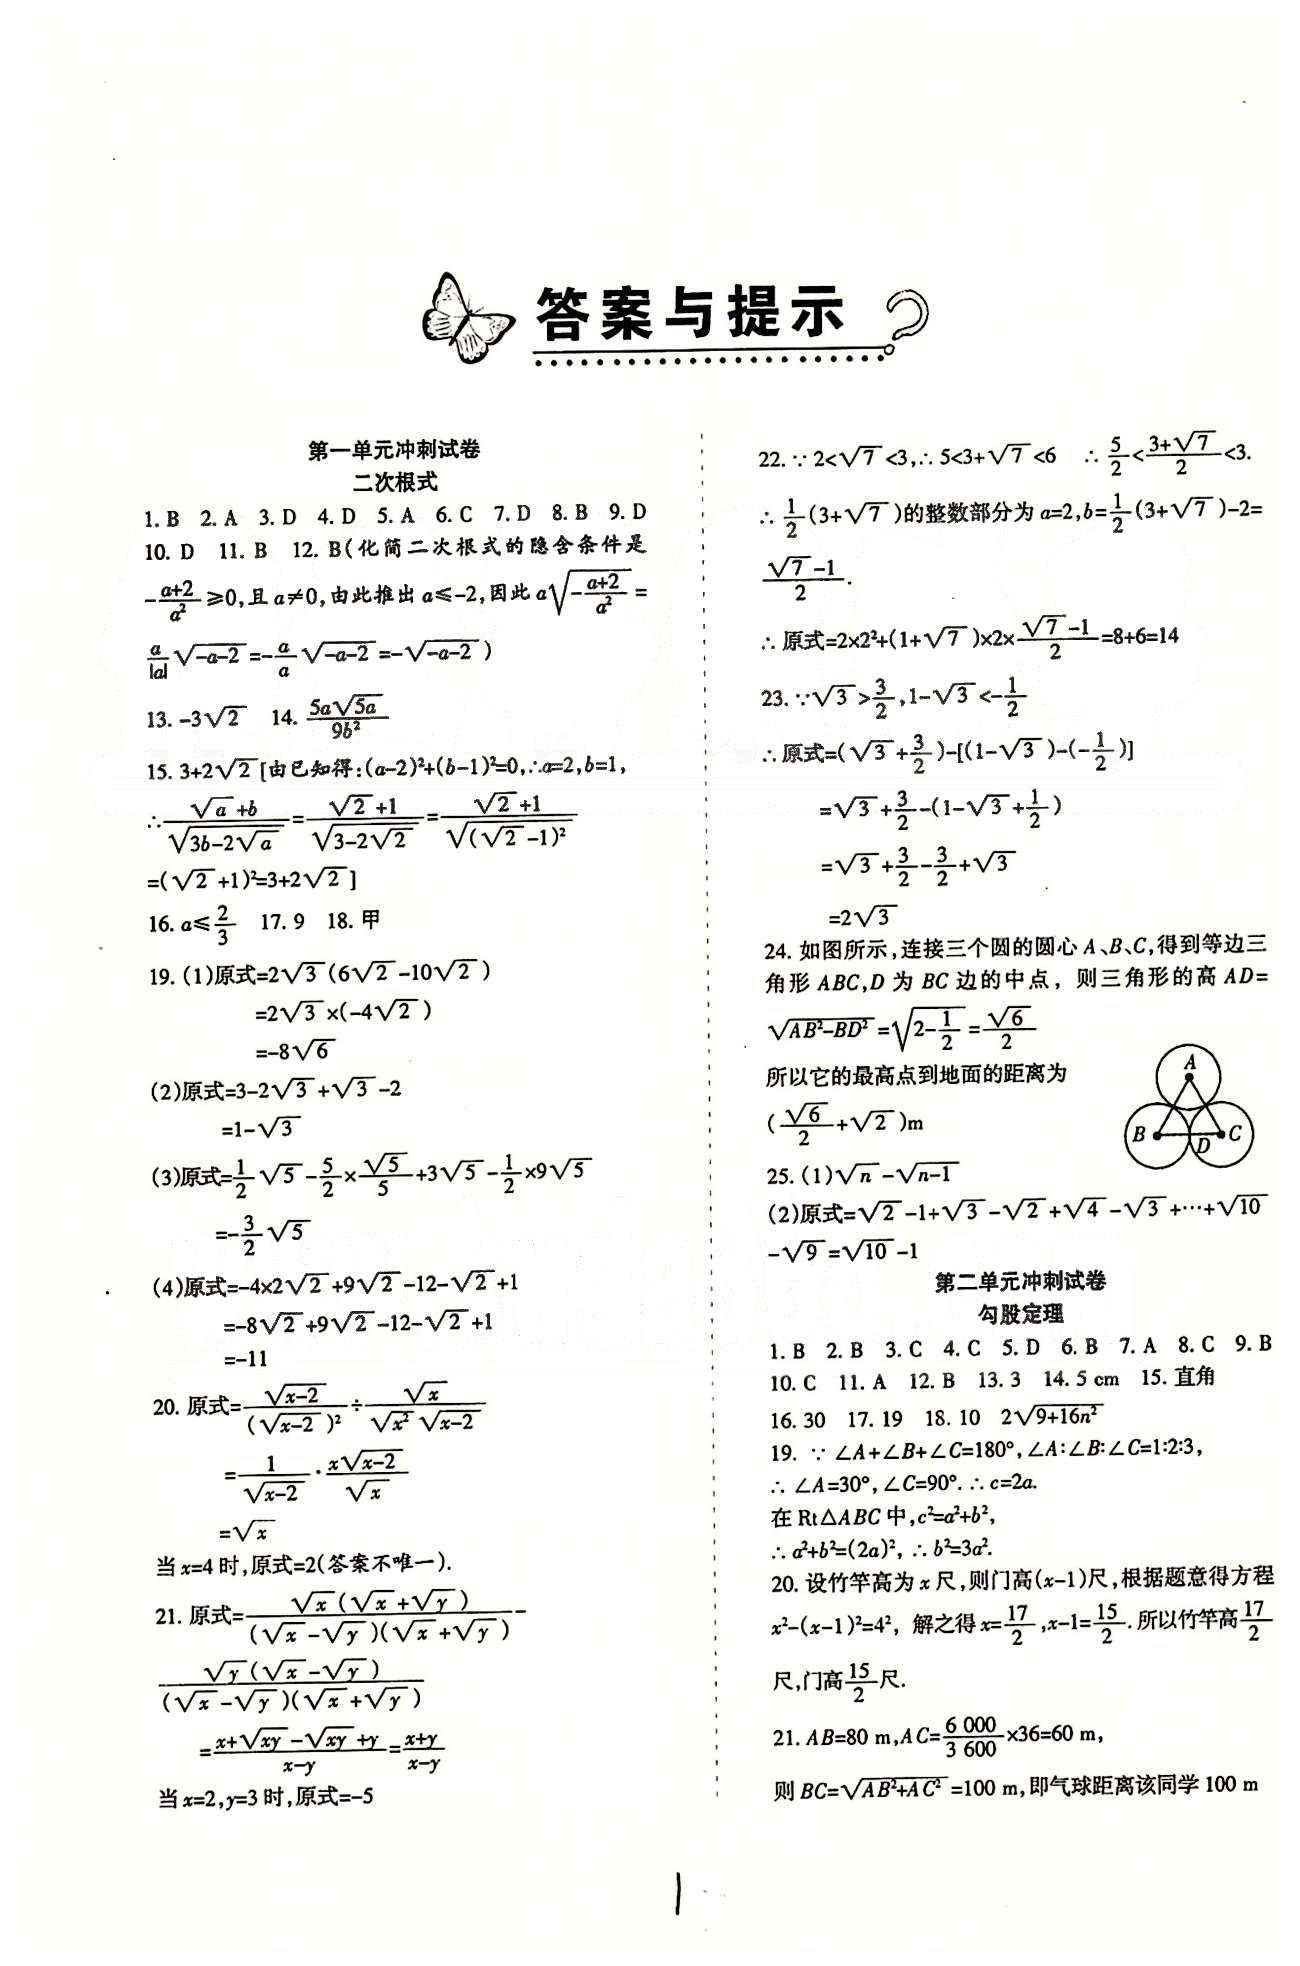 答案与提示
第一单元冲刺试卷
二次根式
1. B 2. A 3. D 4. D 5. A 6. C 7. D 8. B 9. D
10. D 11. B 12. B(化简二次根式的隐含条件是
-\frac{a+2}{a²}≥0,且 a≠0,由此推出 a≤-2,因此 a√(-\frac{a+2}{a²}) =
\frac{a}{|a|}√(-a-2) =-\frac{a}{a}√(-a-2) =-√(-a-2) )
13. -3√2 14. \frac{5a√(5a)}{9b²}
15. 3+2√2 [由已知得:(a-2)²+(b-1)²=0,∴a=2,b=1,
∴\frac{√a+b}{√(3b-2√a)}=\frac{√2+1}{√(3-2√2)}=\frac{√2+1}{√((√2-1)²)}
=(√2+1)²=3+2√2]
16. a≤\frac{2}{3} 17. 9 18. 甲
19. (1)原式=2√3(6√2-10√2)
=2√3×(-4√2)
=-8√6
(2)原式=3-2√3+√3-2
=1-√3
(3)原式=\frac{1}{2}√5-\frac{5}{2}×\frac{√5}{5}+3√5-\frac{1}{2}×9√5
=-\frac{3}{2}√5
(4)原式=-4×2√2+9√2-12-√2+1
=-8√2+9√2-12-√2+1
=-11
20. 原式=\frac{√(x-2)}{(√(x-2))²}÷\frac{√x}{√(x²)√(x-2)}
=\frac{1}{√(x-2)}·\frac{x√(x-2)}{√x}
=√x
当 x=4 时,原式=2(答案不唯一).
21. 原式=\frac{√x(√x+√y)}{(√x-√y)(√x+√y)}-
\frac{√y(√x-√y)}{(√x-√y)(√x+√y)}
=\frac{x+√(xy)-√(xy)+y}{x-y}=\frac{x+y}{x-y}
当 x=2,y=3 时,原式=-5
22. ∵2<√7<3,∴5<3+√7<6 ∴\frac{5}{2}<\frac{3+√7}{2}<3.
∴\frac{1}{2}(3+√7)的整数部分为 a=2,b=\frac{1}{2}(3+√7)-2=
\frac{√7-1}{2}.
∴原式=2×2²+(1+√7)×2×\frac{√7-1}{2}=8+6=14
23. ∵√3>\frac{3}{2},1-√3<-\frac{1}{2}
∴原式=(√3+\frac{3}{2})-[(1-√3)-(-\frac{1}{2})]
=√3+\frac{3}{2}-(1-√3+\frac{1}{2})
=√3+\frac{3}{2}-\frac{3}{2}+√3
=2√3
24. 如图所示,连接三个圆的圆心 A、B、C,得到等边三
角形 ABC,D 为 BC 边的中点，则三角形的高 AD=
√(AB²-BD²)=√(2-\frac{1}{2})=\frac{√6}{2}
所以它的最高点到地面的距离为
(\frac{√6}{2}+√2)m
A
B
D
C
25. (1)√n-√(n-1)
(2)原式=√2-1+√3-√2+√4-√3+…+√10
-√9=√10-1
第二单元冲刺试卷
勾股定理
1. B 2. B 3. C 4. C 5. D 6. B 7. A 8. C 9. B
10. C 11. A 12. B 13. 3 14. 5 cm 15. 直角
16. 30 17. 19 18. 10 2√(9+16n²)
19. ∵∠A+∠B+∠C=180°,∠A∶∠B∶∠C=1∶2∶3,
∴∠A=30°,∠C=90°.∴c=2a.
在 Rt△ABC 中,c²=a²+b²,
∴a²+b²=(2a)²,∴b²=3a².
20. 设竹竿高为 x 尺,则门高(x-1)尺,根据题意得方程
x²-(x-1)²=4²，解之得 x=\frac{17}{2},x-1=\frac{15}{2}.所以竹竿高\frac{17}{2}
尺,门高\frac{15}{2}尺.
21. AB=80 m,AC=\frac{6 000}{3 600}×36=60 m,
则 BC=√(AB²+AC²)=100 m,即气球距离该同学 100 m
1